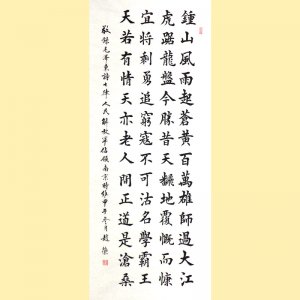 鍾山風雨起蒼黃百萬雄師過大江
虎踞龍盤今勝昔天翻地覆慨而慷
宜將剩勇追窮寇不可沽名學霸王
天若有情天亦老人間正道是滄桑
敬錄毛澤東詩七律人民解放軍佔領南京時維甲午冬月趙